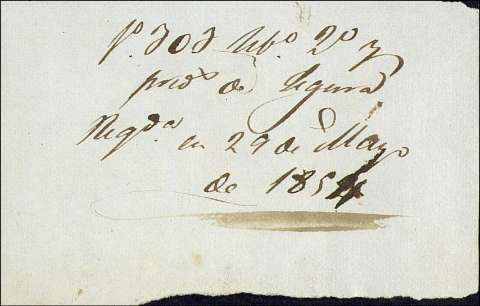 fº 303 Libº 2º y
de Segura
Regda en 29 de Mayo
de 1854